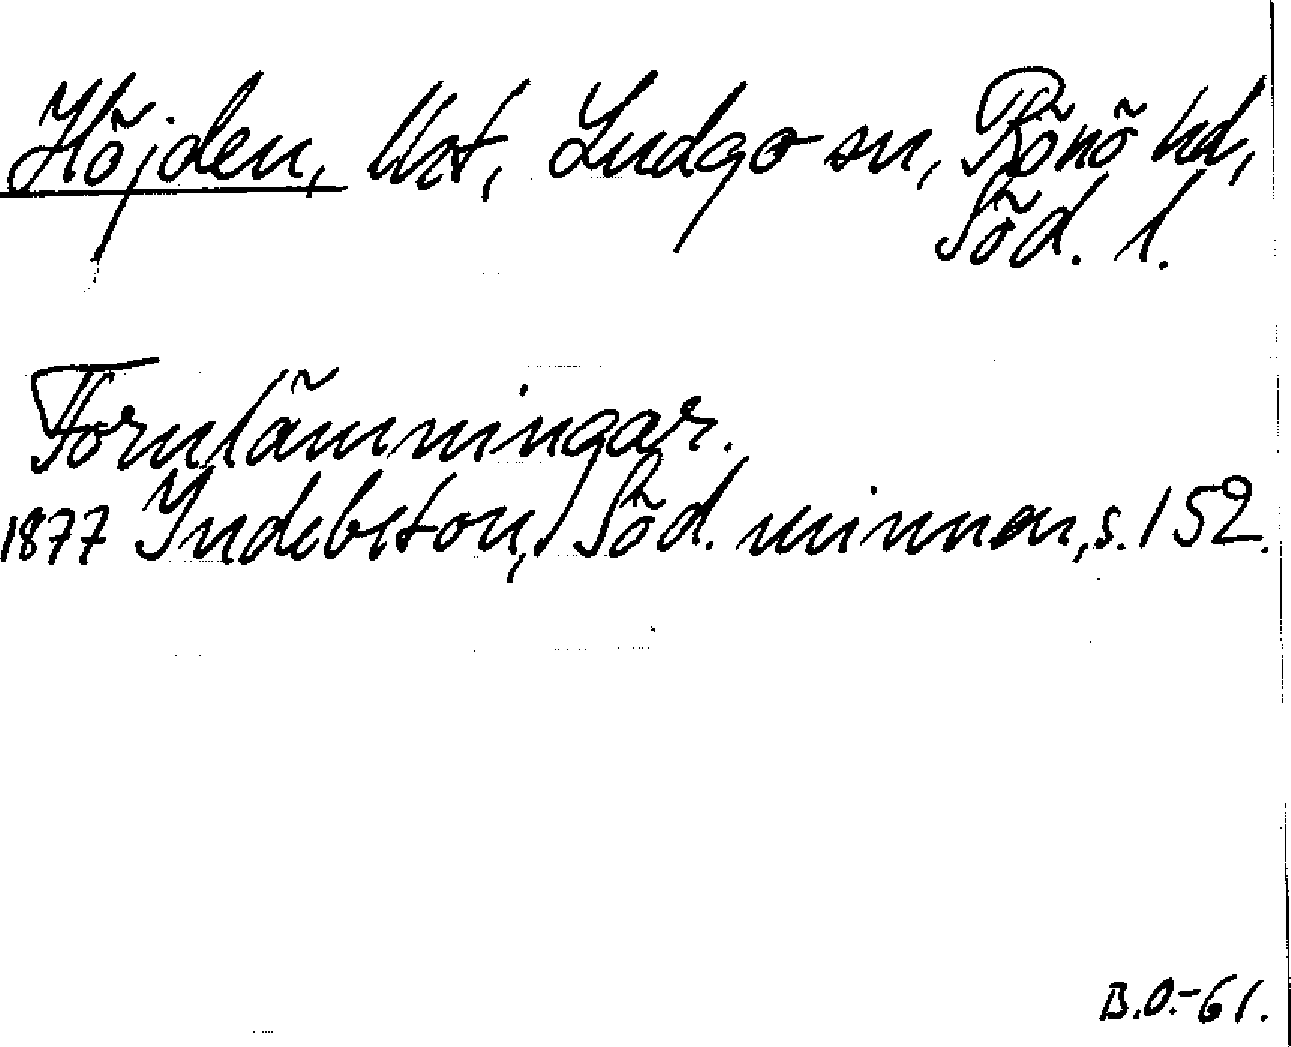 Höjden, Ust, Ludgo sn, Rönö hd,
Söd. l.
Fornlämningar.
1877 Indebetou, Söd. minnen, s. 152.
B.O.-61.